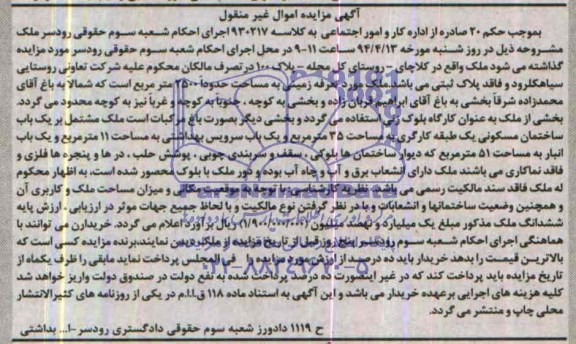 آگهی مزایده اموال غیر منقول
بموجب حکم ۲۰ صادره از اداره کار و امور اجتماعی به کلاسه ۹۳۰۲۱۷ اجرای احکام شعبه سوم حقوقی رودسر ملک
مشروحه ذیل در روز شنبه مورخه ۹۴/۴/۱۳ ساعت ۱۱-۹ در محل اجرای احکام شعبه سوم حقوقی رودسر مورد مزایده
گذاشته می شود ملک واقع در کلاچای - روستای کل محله - پلاک ۱۰۰ در تصرف مالکان محکوم علیه شرکت تعاونی روستایی
سیاهکلرود و فاقد پلاک ثبتی می باشد. ملک مورد تعرفه زمینی به مساحت حدودا ۲۵۰۰ متر مربع است که شمالا به باغ آقای
محمدزاده شرقاً بخشی به باغ آقای ابراهیم قربان زاده و بخشی به کوچه ، جنوباً به کوچه و غرباً نیز به کوچه محدود می گردد.
بخشی از ملک به عنوان کارگاه بلوک زنی استفاده می گردد و بخشی دیگر بصورت باغ مرکبات است ملک مشتمل بر یک باب
ساختمان مسکونی یک طبقه کارگری به مساحت ۳۵ مترمربع و یک باب سرویس بهداشتی به مساحت ۱۱ مترمربع و یک باب
انبار به مساحت ۵۱ مترمربع که دیوار ساختمان ها بلوکی ، سقف و سربندی چوبی ، پوشش حلب ، در ها و پنجره ها فلزی و
فاقد نماکاری می باشند ملک دارای انشعاب برق و آب و چاه آب بوده و دور ملک با بلوک محصور شده است. به اظهار محکوم
له ملک فاقد سند مالکیت رسمی می باشد. نظر به کارشناسی با توجه به موقعیت مکانی و میزان مساحت ملک و کاربری آن
و همچنین وضعیت ساختمانها و انشعابات و با در نظر گرفتن نوع مالکیت و با لحاظ جمیع جهات موثر در ارزیابی ، ارزش پایه
ششدانگ ملک مذکور مبلغ یک میلیارد و نهصد میلیون (۱/۹۰۰/۰۰۰/۰۰۰) ریال برآورد اعلام می گردد. خریدارن می توانند با
هماهنگی اجرای احکام شعبه سوم رودسر پنج روز قبل از تاریخ مزایده از ملک دیدن نمایند.برنده مزایده کسی است که
بالاترین قیمت را بدهد خریدار باید ده درصد از ارزش مورد مزایده را فی المجلس پرداخت نماید مابقی را ظرف یکماه از
تاریخ مزایده باید پرداخت کند که در غیر اینصورت ده درصد پرداخت شده به نفع دولت در صندوق دولت واریز خواهد شد
کلیه هزینه های اجرایی برعهده خریدار می باشد و این آگهی به استناد ماده ۱۱۸ ق.ا.ا.م در یکی از روزنامه های کثیرالانتشار
محلی چاپ و منتشر می گردد.
ح ۱۱۱۹ دادورز شعبه سوم حقوقی دادگستری رودسر -ا... بداشتی
۰۲۱-۸۸۳۴۹۶۷۰-۵